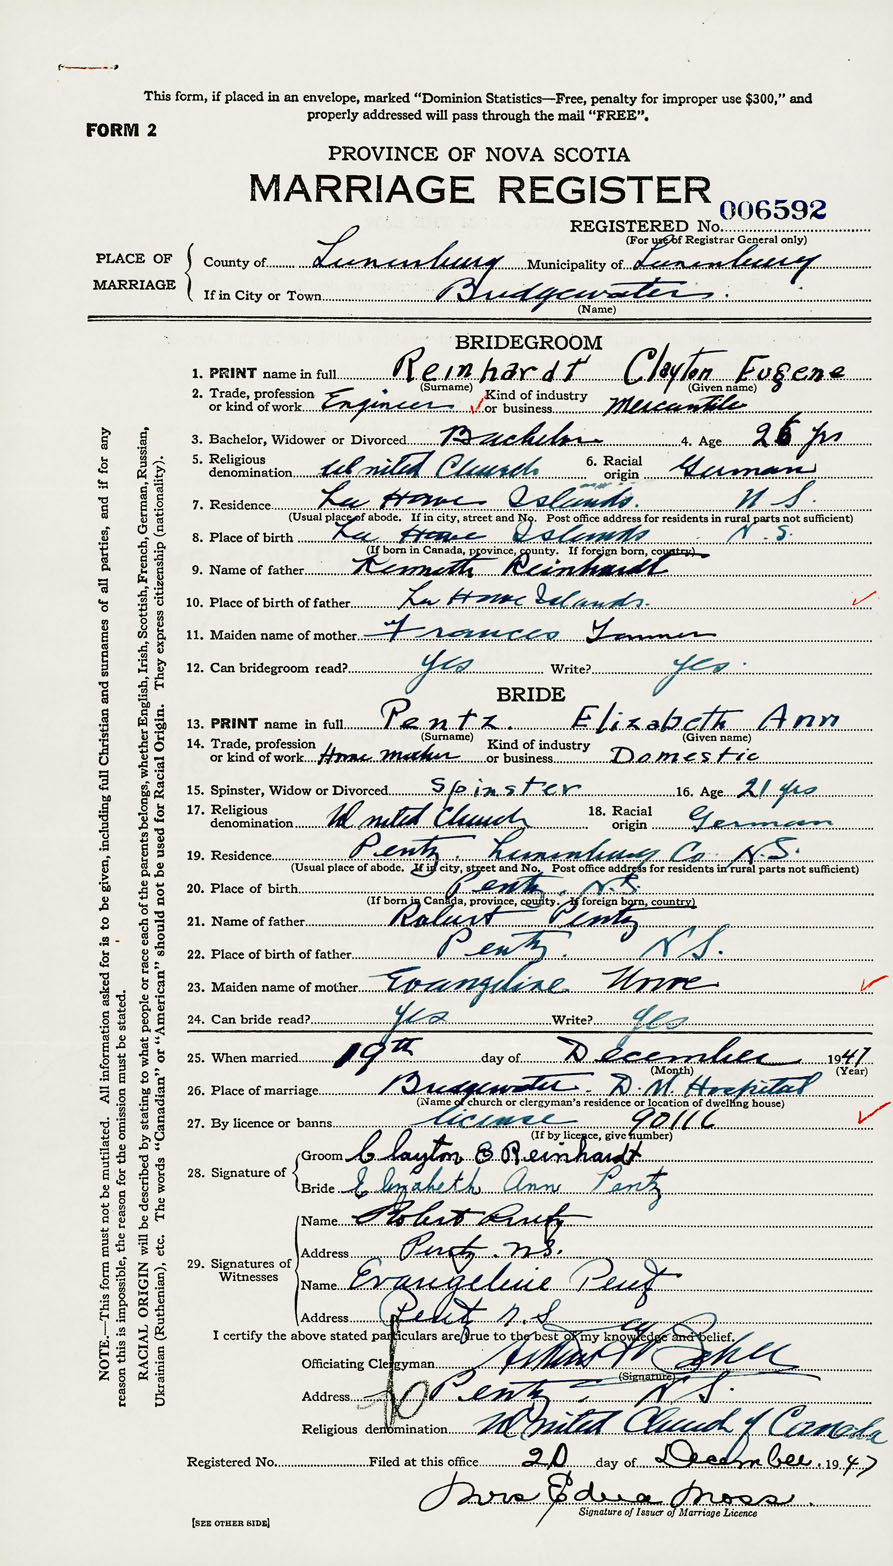 This form, if placed in an envelope, marked "Dominion Statistics—Free, penalty for improper use $300," and
properly addressed will pass through the mail "FREE".
FORM 2
PROVINCE OF NOVA SCOTIA
MARRIAGE REGISTER
REGISTERED No. 006592
(For use of Registrar General only)
PLACE OF MARRIAGE
County of Lunenburg Municipality of Lunenburg
If in City or Town Bridgewater
(Name)
BRIDEGROOM
1. PRINT name in full Reinhardt Clayton Eugene
(Surname) (Given name)
2. Trade, profession or kind of work Engineer Kind of industry or business Mercantile
3. Bachelor, Widower or Divorced Bachelor 4. Age 26 yrs
5. Religious denomination United Church 6. Racial origin German
7. Residence La Have Islands. N.S.
(Usual place of abode. If in city, street and No. Post office address for residents in rural parts not sufficient)
8. Place of birth La Have Islands N.S.
(If born in Canada, province, county. If foreign born, country)
9. Name of father Kenneth Reinhardt
10. Place of birth of father La Have Islands.
11. Maiden name of mother Frances
12. Can bridegroom read? Yes Write? Yes.
BRIDE
13. PRINT name in full Pentz. Elizabeth Ann
(Surname) (Given name)
14. Trade, profession or kind of work Home Kind of industry or business Domestic
15. Spinster, Widow or Divorced Spinster 16. Age 21 yrs
17. Religious denomination United Church 18. Racial origin German
19. Residence Pentz. Lunenburg Co. N.S.
(Usual place of abode. If in city, street and No. Post office address for residents in rural parts not sufficient)
20. Place of birth Pentz, N.S.
(If born in Canada, province, county. If foreign born, country)
21. Name of father Robert Pentz
22. Place of birth of father Pentz. N.S.
23. Maiden name of mother Evangeline
24. Can bride read? Yes Write? Yes
25. When married 19th day of December 1947
(Month) (Year)
26. Place of marriage Bridgewater. D. M. Hospital
(Name of church or clergyman's residence or location of dwelling house)
27. By licence or banns license 90116
(If by licence, give number)
28. Signature of
Groom Clayton E Reinhardt
Bride Elizabeth Ann Pentz
29. Signatures of Witnesses
Name Robert Pentz
Address Pentz. N.S.
Name Evangeline Pentz
Address Pentz N.S
I certify the above stated particulars are true to the best of my knowledge and belief.
Officiating Clergyman
(Signature)
Address Pentz, N.S.
Religious denomination United Church of Canada
Registered No. Filed at this office 20 day of December, 1947
Mrs Edna Moss.
Signature of Issuer of Marriage Licence
[SEE OTHER SIDE]
NOTE.—This form must not be mutilated. All information asked for is to be given, including full Christian and surnames of all parties, and if for any
reason this is impossible, the reason for the omission must be stated.
RACIAL ORIGIN will be described by stating to what people or race each of the parents belongs, whether English, Irish, Scottish, French, German, Russian,
Ukrainian (Ruthenian), etc. The words "Canadian" or "American" should not be used for Racial Origin. They express citizenship (nationality).